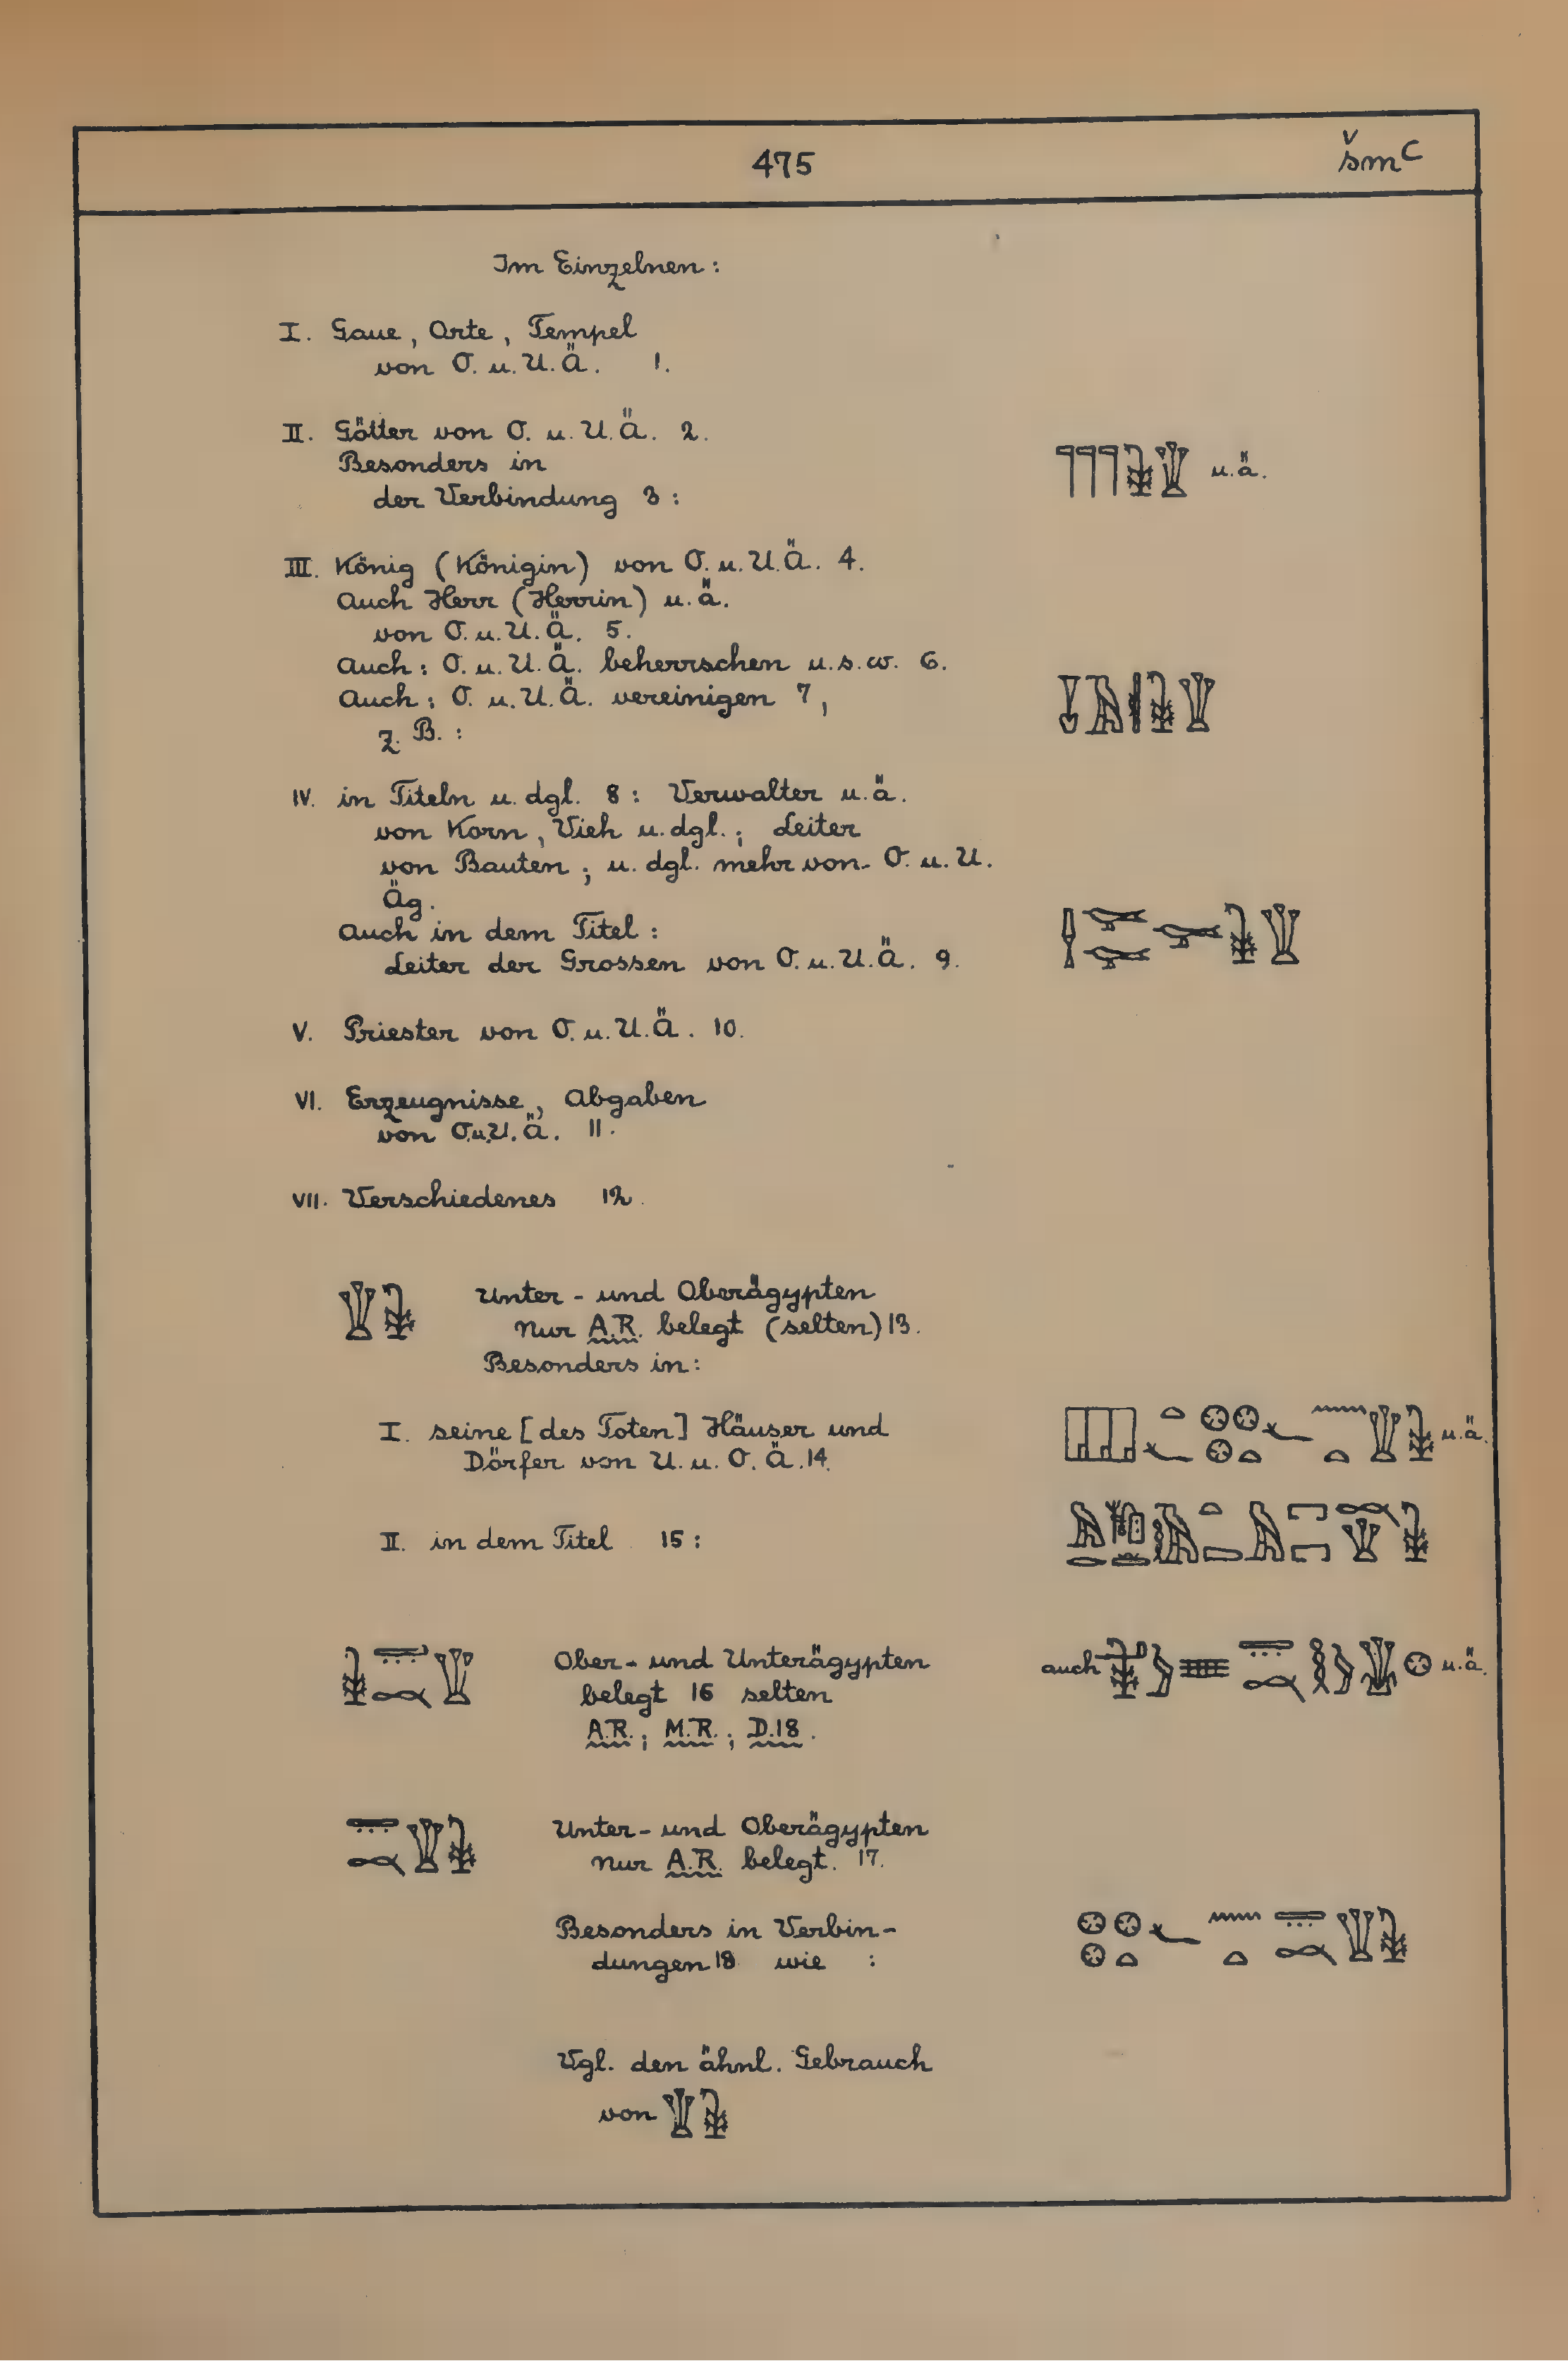 475 šmꜥ
Im Einzelnen:
I. Gaue, Orte, Tempel
von O. u. U. Ä. 1.
II. Götter von O. u. U. Ä. 2.
Besonders in
der Verbindung 3:
u. ä.
III. König (Königin) von O. u. U. Ä. 4.
Auch Herr (Herrin) u. ä.
von O. u. U. Ä. 5.
Auch: O. u. U. Ä. beherrschen u. s. w. 6.
Auch: O. u. U. Ä. vereinigen 7,
z. B.:
IV. in Titeln u. dgl. 8: Verwalter u. ä.
von Korn, Vieh u. dgl.; Leiter
von Bauten; u. dgl. mehr von O. u. U.
Äg.
Auch in dem Titel:
Leiter der Grossen von O. u. U. Ä. 9.
V. Priester von O. u. U. Ä. 10.
VI. Erzeugnisse, Abgaben
von O. u. U. Ä. 11.
VII. Verschiedenes 12.
Unter- und Oberägypten
nur A.R. belegt (selten) 13.
Besonders in:
I. seine [des Toten] Häuser und
Dörfer von U. u. O. Ä. 14.
u. ä.
II. in dem Titel 15:
Ober- und Unterägypten
belegt 16 selten
A.R.; M.R.; D.18.
auch u. ä.
Unter- und Oberägypten
nur A.R. belegt. 17.
Besonders in Verbin-
dungen 18 wie :
Vgl. den ähnl. Gebrauch
von